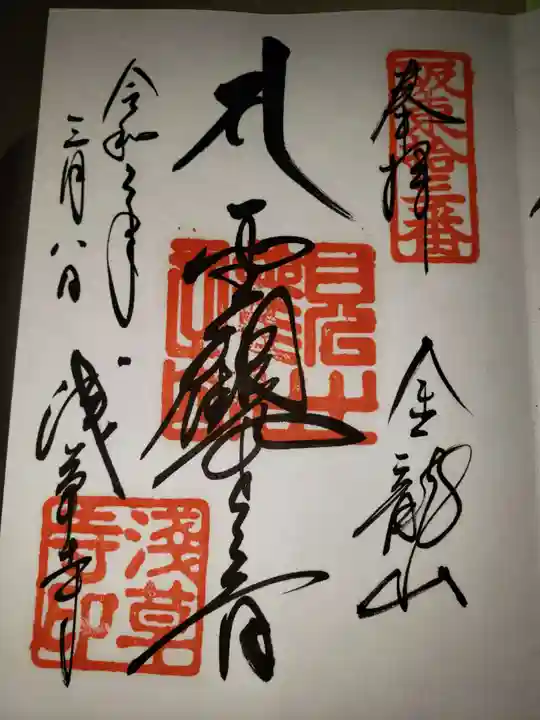 坂東拾三番
奉拝
金龍山
聖観世音
令和年
三月八日
浅草寺
淺草寺印